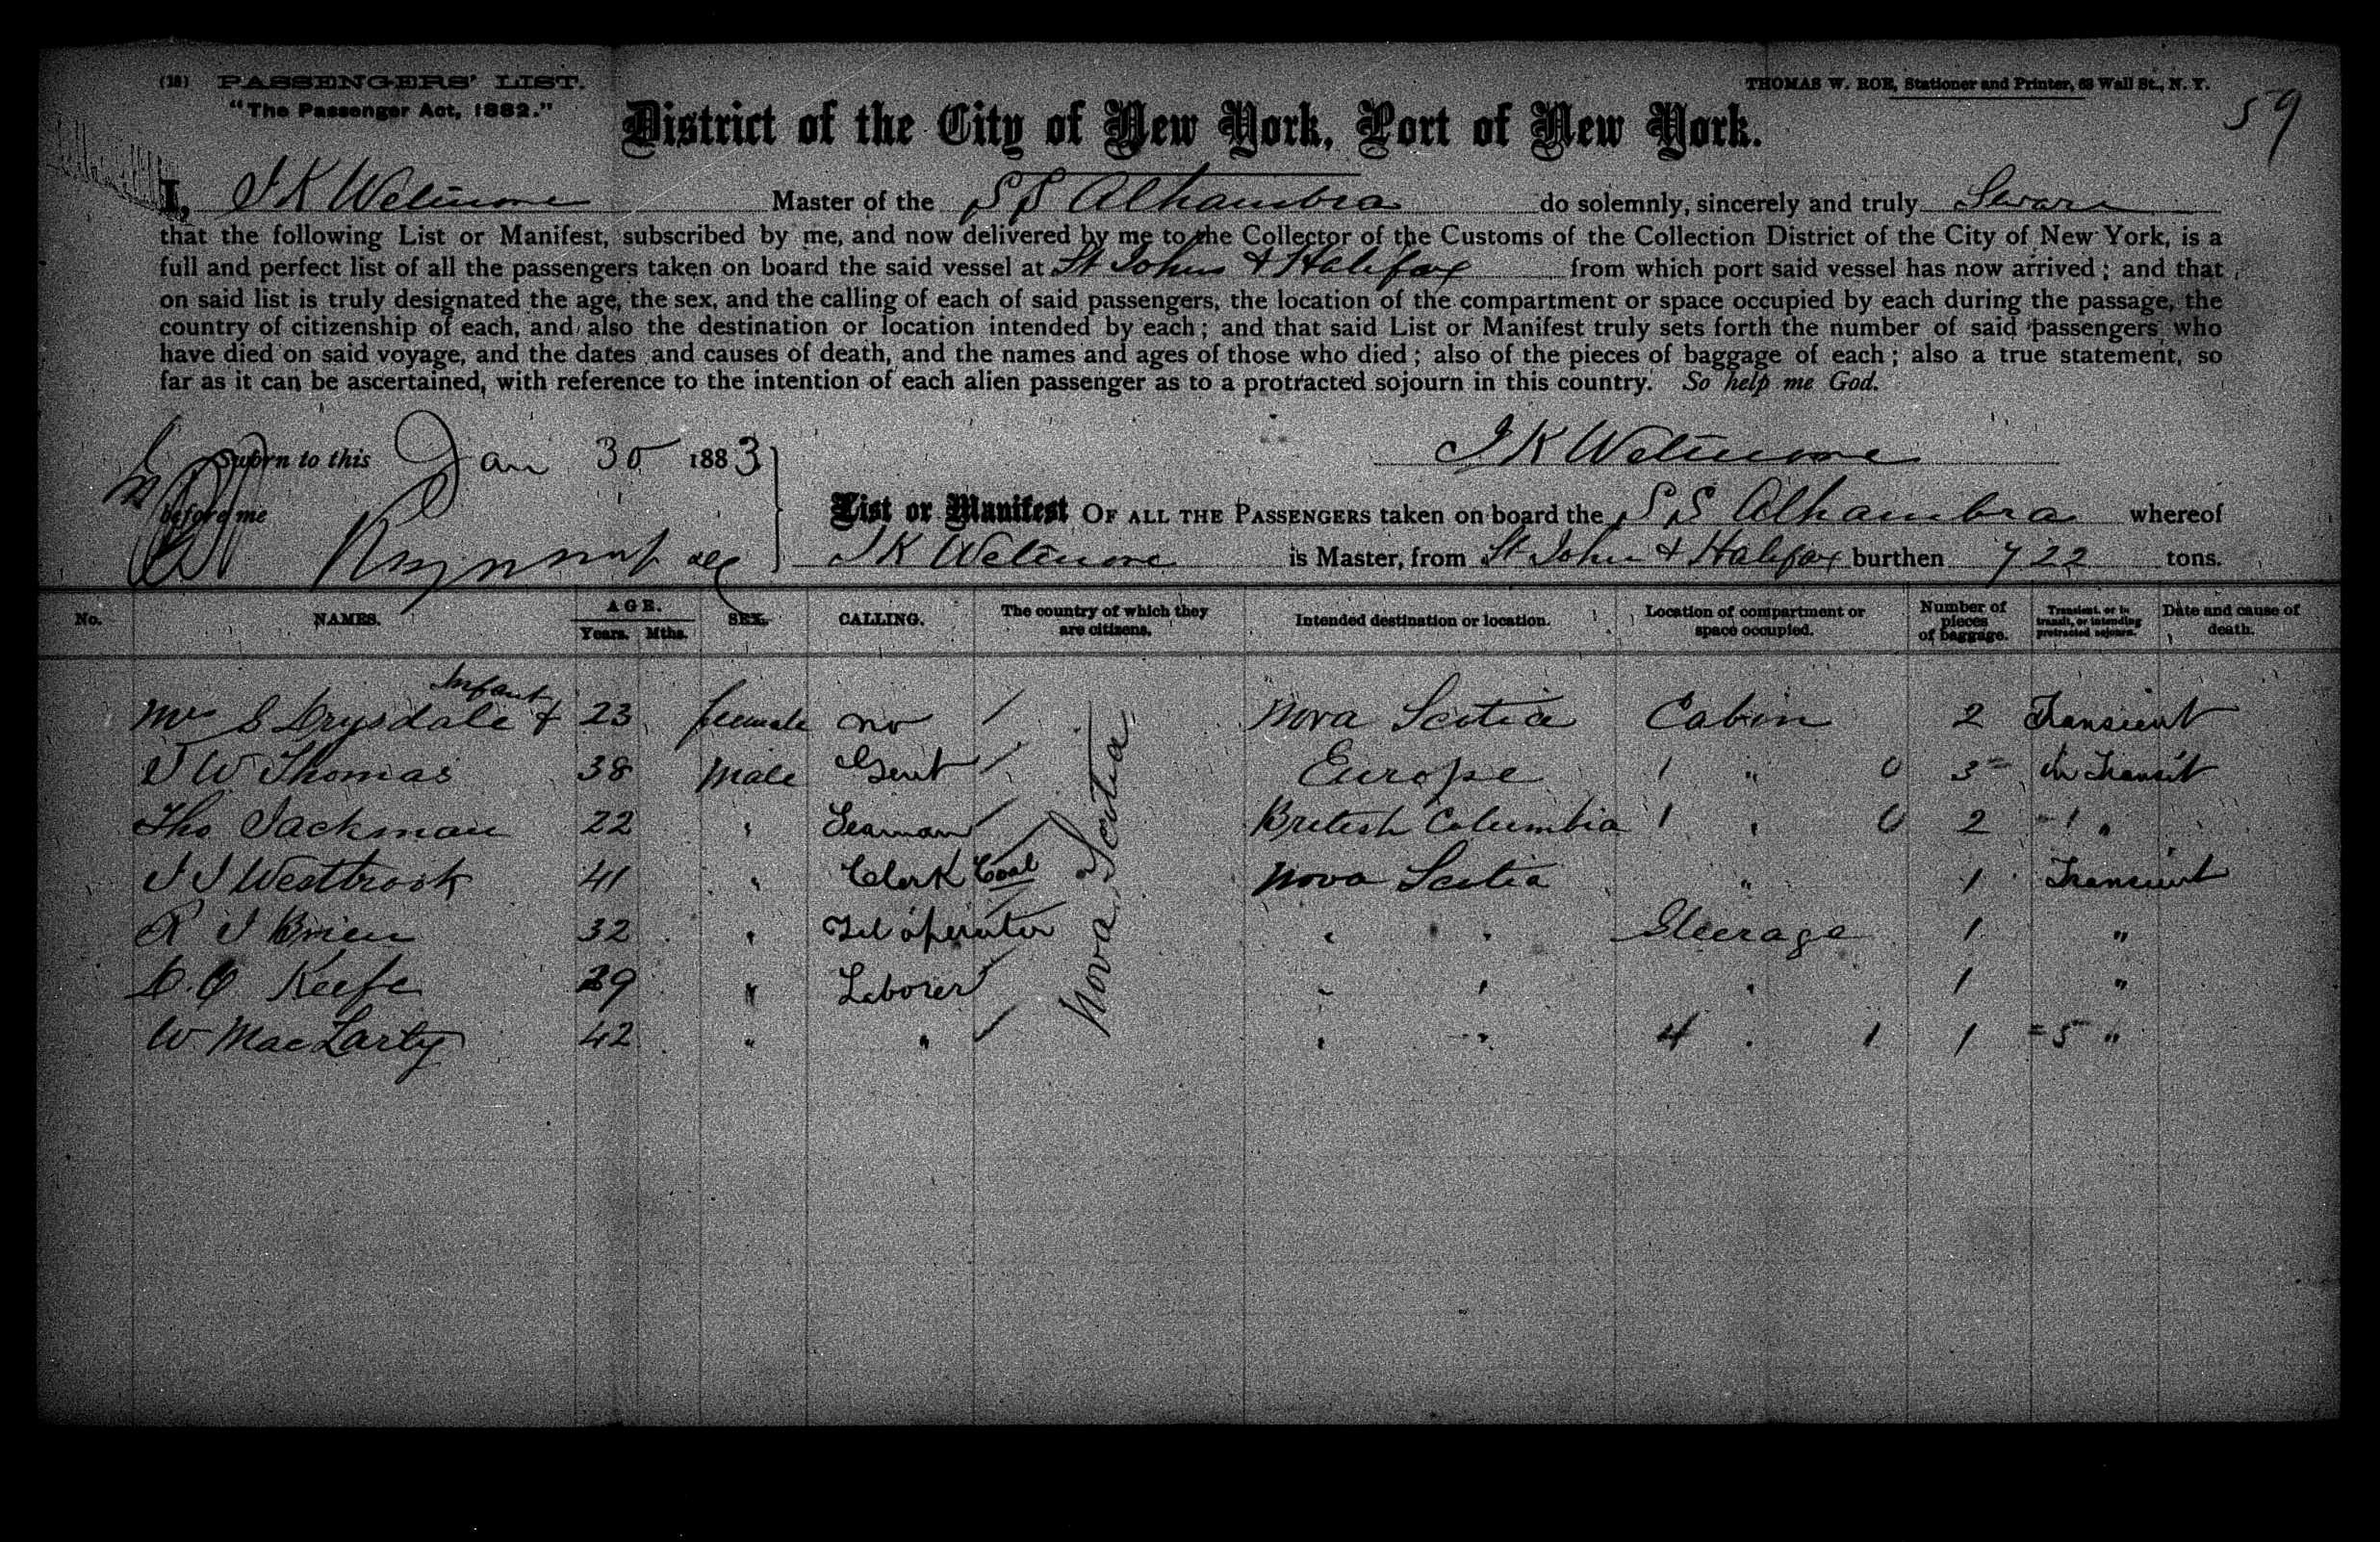 (18) PASSENGERS' LIST.
THOMAS W. ROE, Stationer and Printer, 68 Wall St., N. Y.
"The Passenger Act, 1882."
59
District of the City of New York, Port of New York.
I, J K Wetmore Master of the S S Alhambra do solemnly, sincerely and truly Swear
that the following List or Manifest, subscribed by me, and now delivered by me to the Collector of the Customs of the Collection District of the City of New York, is a
full and perfect list of all the passengers taken on board the said vessel at St Johns & Halifax from which port said vessel has now arrived; and that
on said list is truly designated the age, the sex, and the calling of each of said passengers, the location of the compartment or space occupied by each during the passage, the
country of citizenship of each, and also the destination or location intended by each; and that said List or Manifest truly sets forth the number of said passengers who
have died on said voyage, and the dates and causes of death, and the names and ages of those who died; also of the pieces of baggage of each; also a true statement, so
far as it can be ascertained, with reference to the intention of each alien passenger as to a protracted sojourn in this country. So help me God.
Sworn to this Jan 30 1883
J K Wetmore
before me
List or Manifest OF ALL THE PASSENGERS taken on board the S S Alhambra whereof
J K Wetmore is Master, from St John & Halifax burthen 722 tons.
No. NAMES. AGE. Years. Mths. SEX. CALLING. The country of which they are citizens. Intended destination or location. Location of compartment or space occupied. Number of pieces of baggage. Transient, or in transit, or intending protracted sojourn. Date and cause of death.
Infant
Mrs S Drysdale & 23 female no Nova Scotia Cabin 2 Transient
J W Thomas 38 Male Gent / Europe 1 " 0 3 In Transit
Tho Jackman 22 " Seaman / British Columbia 1 " 0 2 - 1 "
J J Westbrook 41 " Clerk Coal Nova Scotia " 1 Transient
R J Brien 32 " Tel operator " " Steerage 1 "
D. O Keefe 29 " Laborer " " " 1 "
W MacLarty 42 " " / " " 4 " 1 1 = 5 "
Nova Scotia